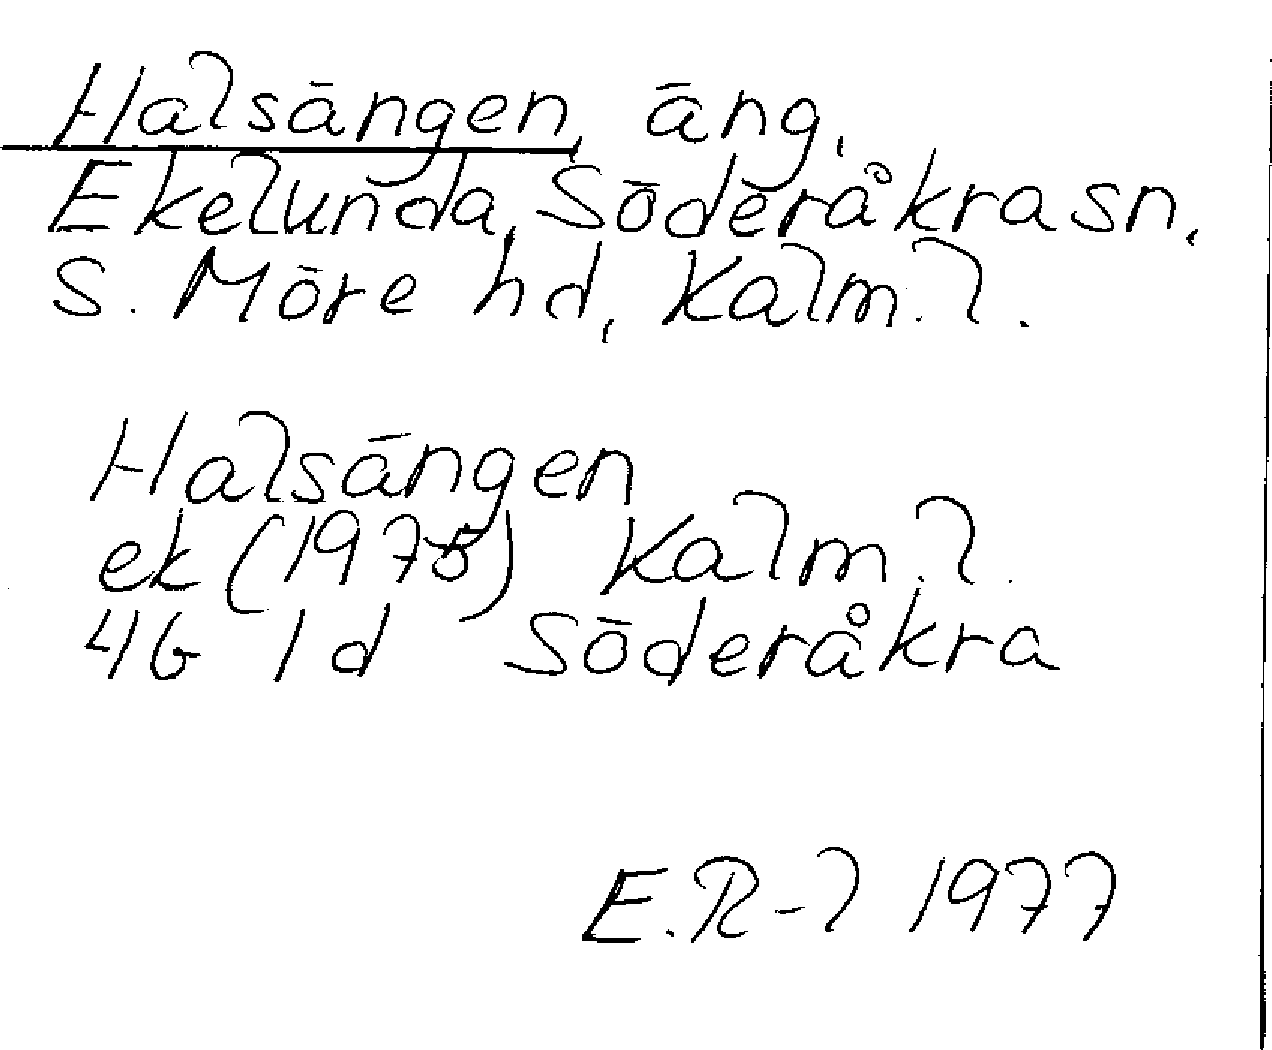 Halsängen, äng,
Ekelunda, Söderåkra sn.
S. Möre hd, Kalm. l.
Halsängen
ek (1975) Kalm. l.
4G 1d Söderåkra
E.R-l 1977